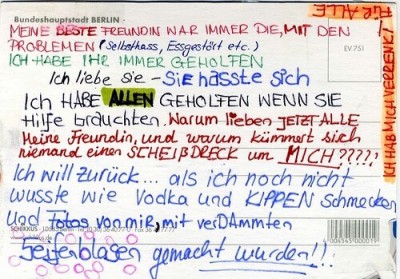 Bundeshauptstadt BERLIN
MEINE BESTE FREUNDIN WAR IMMER DIE, MIT DEN
PROBLEMEN (Selbsthass, Essgestört etc.)
ICH HABE IHR IMMER GEHOLFEN
Ich liebe sie - SiE hässte sich
ICH HABE ALLEN GEHOLFEN WENN SIE
Hilfe brauchten. Warum lieben JETZT ALLE
Meine Freundin, und warum kümmert sich
niemand einen SCHEIßDRECK um MICH????!
Ich will zurück... als ich noch nicht
wusste wie Vodka und KIPPEN Schmecken
und Fotos von miR, mit verDAmmten
Seifenblasen gemacht wurden!!!
FÜR ALLE!
ICH HAB MICH VERRENKT!
EV 751